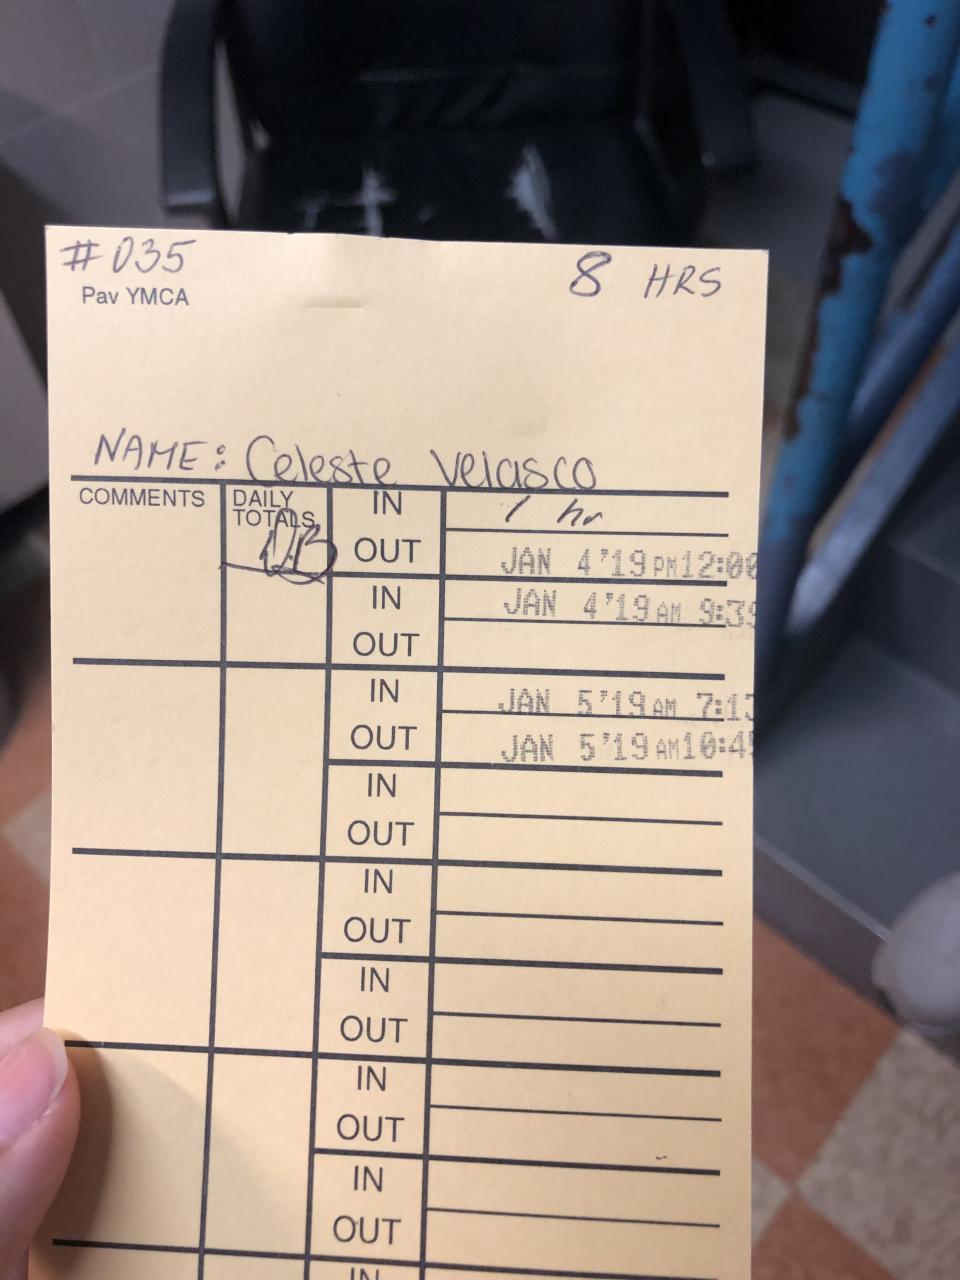 #035
8 HRS
Pav YMCA
NAME: Celeste Velasco
COMMENTS
DAILY
TOTALS
IN
1 hr
OUT
JAN 4'19 PM12:00
IN
JAN 4'19 AM 9:39
OUT
IN
JAN 5'19 AM 7:13
OUT
JAN 5'19 AM10:45
IN
OUT
IN
OUT
IN
OUT
IN
OUT
IN
OUT
IN